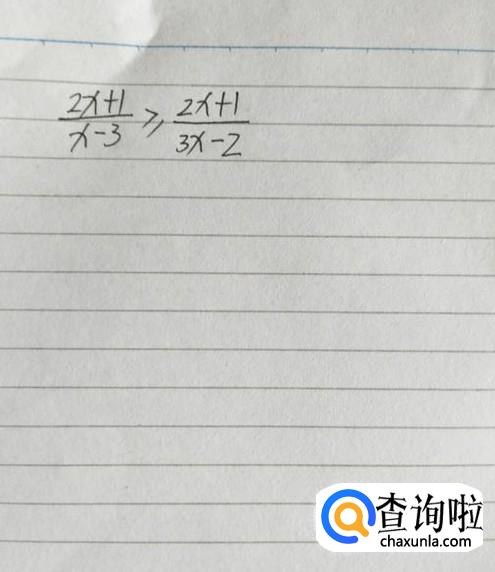 2x+1 / x-3 ≥ 2x+1 / 3x-2
查询啦
chaxunla.com